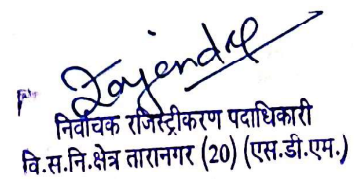 Rajendra
निर्वाचक रजिस्ट्रीकरण पदाधिकारी
वि.स.नि.क्षेत्र तारानगर (20) (एस.डी.एम.)